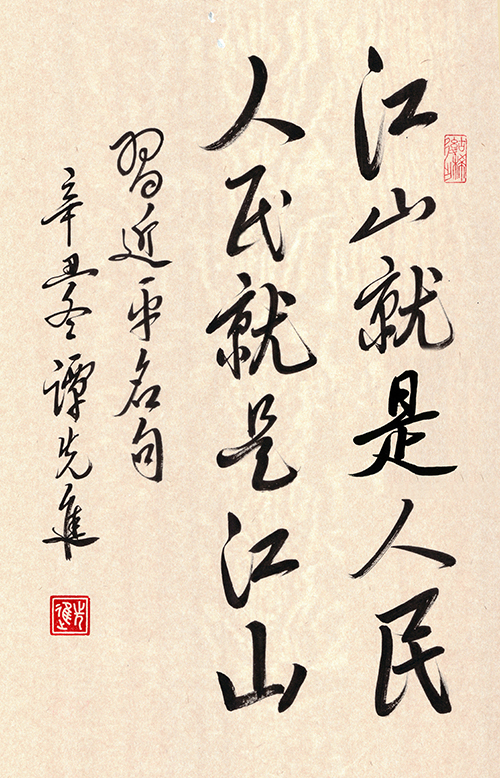 江山就是人民
人民就是江山
習近平名句
辛丑冬譚先進
先進